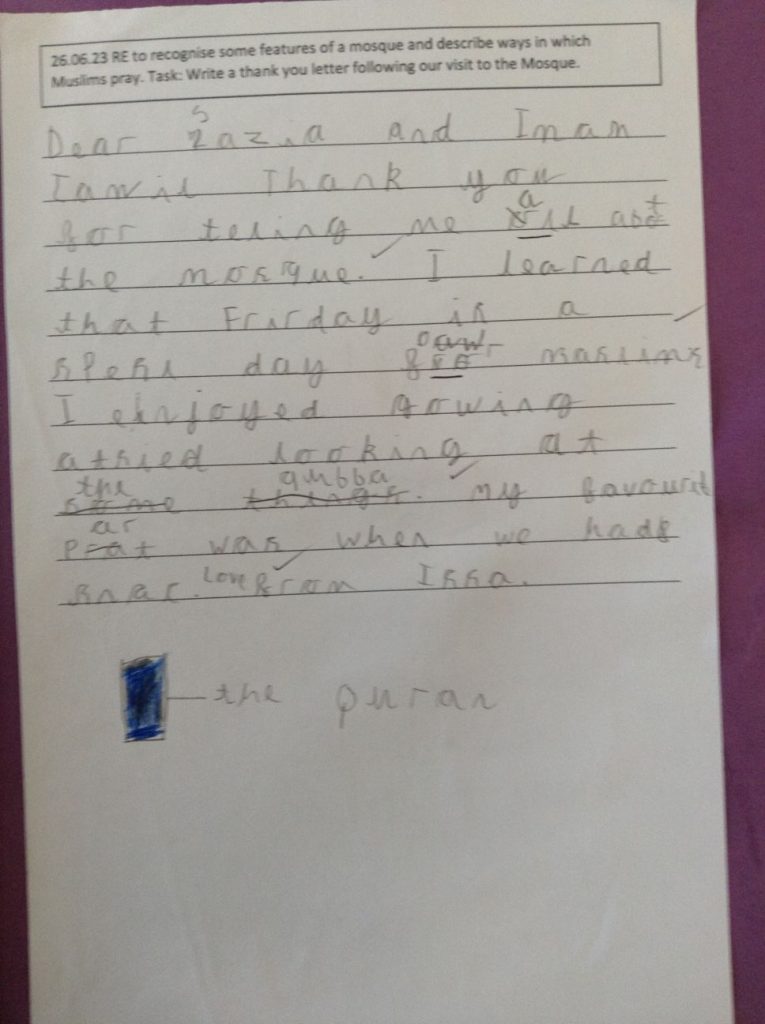 26.06.23 RE to recognise some features of a mosque and describe ways in which
Muslims pray. Task: Write a thank you letter following our visit to the Mosque.
S
Dear zazia and Iman
Tawil Thank you
a t
for teling me oll abot
the mosque. I learned
that Frirday is a
our
spesl day for maslims
I ehnjoyed gowing
athied looking at
the qubba
some things. my favourit
ar
prat was when we hads
snac. Love from Issa.
the Quran